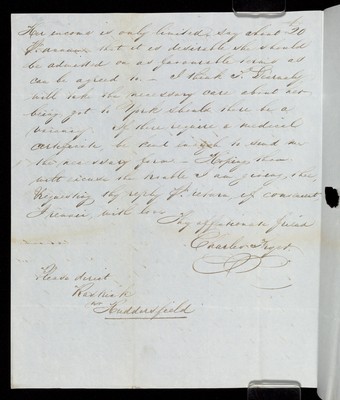 Her income is only limited say about £20
P annum that it is desirable she should
be admitted on as favourable terms as
can be agreed to – I think
will take the necessary care about her
being got to York should there be a
vacancy If thee require a medical
certificate, be kind enough to send me
the necessary forms – Hoping thou
wilt excuse the trouble I am giving thee &
Requesting thy reply P return, if convenient
I remain, with love
Thy affectionate friend
Charles Fryer
Please direct
Rastrick
nr Huddersfield